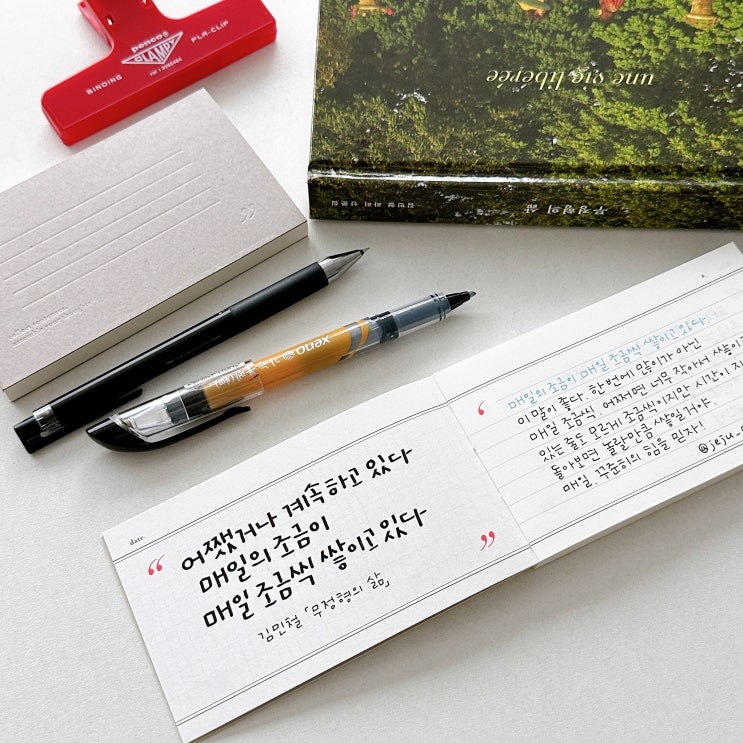 penco®
CLAMPY
BINDING
PLA-CLIP
une vie libérée
무정형의 삶
김민철 파리 산문집
xeno
date.
“
어쨌거나 계속하고 있다
매일의 조금이
매일 조금씩 쌓이고 있다
”
김민철 「무정형의 삶」
매일의 조금이 매일 조금씩 쌓이고 있다
이 말이 좋다. 한번에 많이가 아닌
매일 조금씩. 어쩌면 너무 작아서 쌓이고
있는 줄도 모르게 조금씩이지만 시간이 지
돌아보면 놀랄만큼 쌓일거야.
매일. 꾸준히의 힘을 믿자!
@jeju_